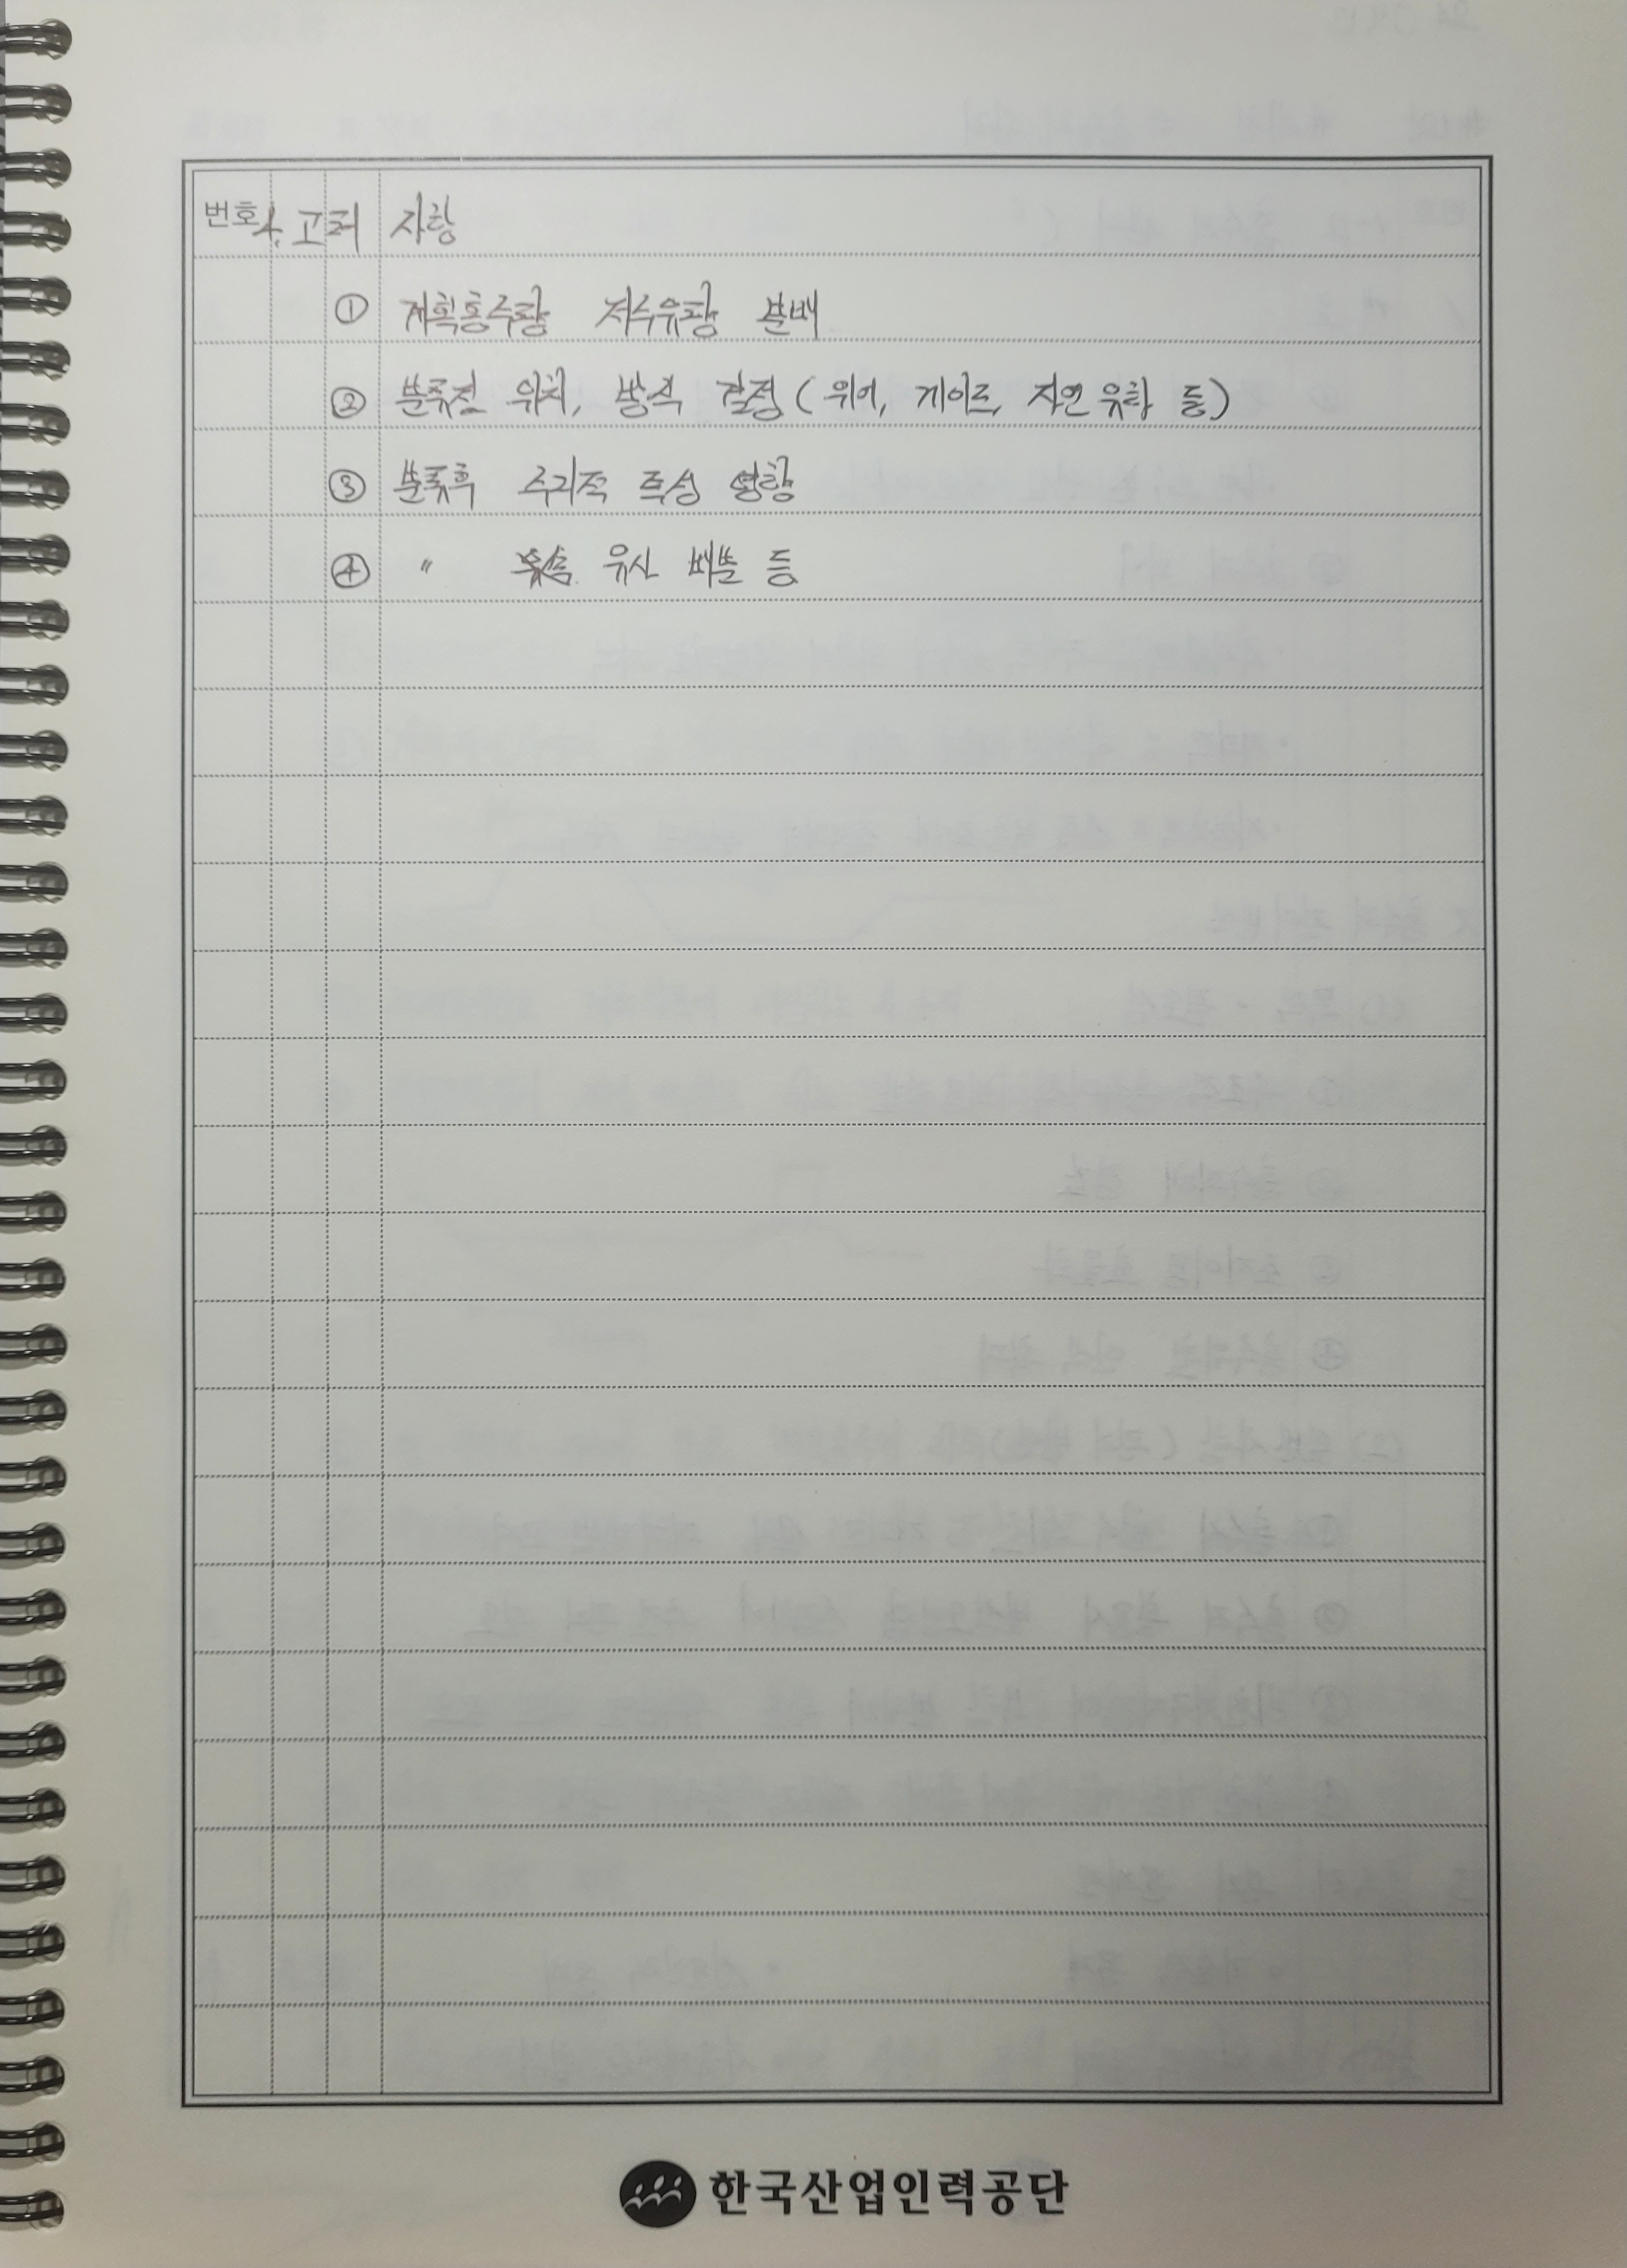 번호 4. 고려 사항
① 계획홍수량 저수유량 분배
② 분류점 위치, 방식 결정 (위어, 게이트, 자연유하 등)
③ 분류후 수리적 특성 영향
④ 〃 유사 배분 등
한국산업인력공단